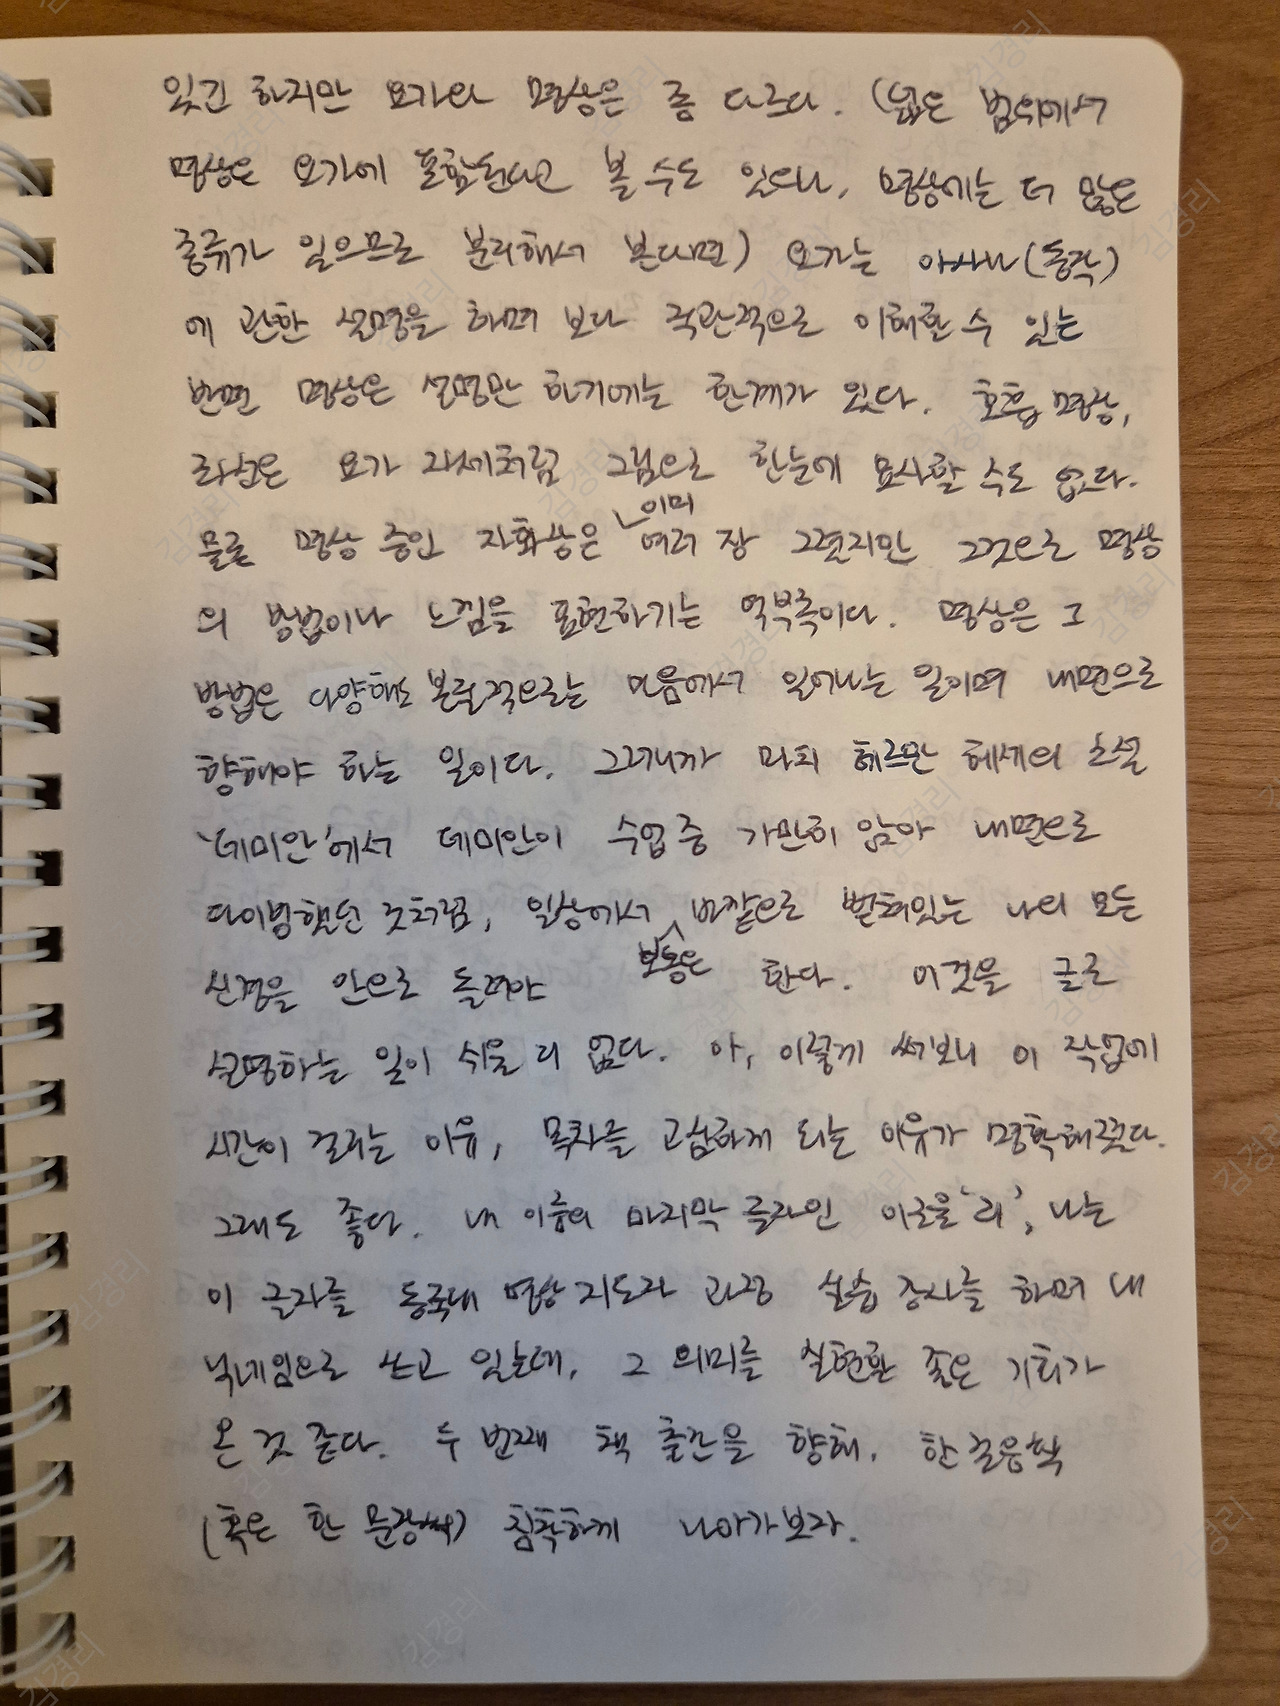 있긴 하지만 요가와 명상은 좀 다르다. (넓은 범위에서
명상은 요가에 포함된다고 볼 수도 있으나, 명상에는 더 많은
종류가 있으므로 분리해서 본다면) 요가는 아사나(동작)
에 관한 설명을 하며 보다 직관적으로 이해할 수 있는
반면 명상은 설명만 하기에는 한계가 있다. 호흡 명상,
좌선은 요가 자세처럼 그림으로 한눈에 묘사할 수도 없다.
물론 명상 중인 자화상은 이미 여러 장 그렸지만 그것으로 명상
의 방법이나 느낌을 표현하기는 역부족이다. 명상은 그
방법은 다양해도 본질적으로는 마음에서 일어나는 일이며 내면으로
향해야 하는 일이다. 그러니까 마치 헤르만 헤세의 소설
'데미안'에서 데미안이 수업 중 가만히 앉아 내면으로
다이빙했던 것처럼, 일상에서 보통은 바깥으로 뻗쳐있는 나의 모든
신경을 안으로 돌려야 한다. 이것을 글로
설명하는 일이 쉬울 리 없다. 아, 이렇게 써보니 이 작업에
시간이 걸리는 이유, 목차를 고심하게 되는 이유가 명확해졌다.
그래도 좋다. 내 이름의 마지막 글자인 이로울 '리', 나는
이 글자를 동국대 명상 지도자 과정 실습 강사를 하며 내
닉네임으로 쓰고 있는데, 그 의미를 실현할 좋은 기회가
온 것 같다. 두 번째 책 출간을 향해, 한 걸음씩
(혹은 한 문장씩) 침착하게 나아가보자.
김경리